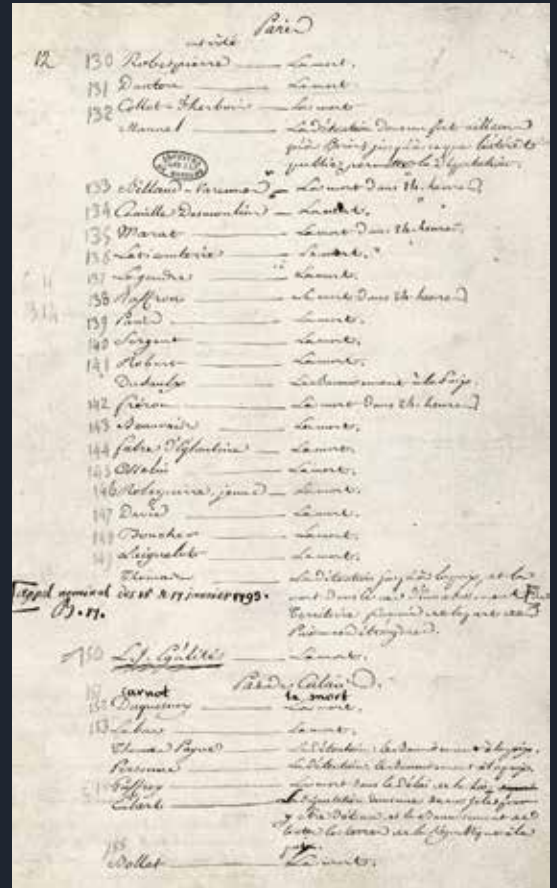 Paris
12 130 Robespierre — La mort.
131 Danton — La mort.
132 Collot-d'herbois — La mort
Manuel — La détention dans un fort ailleurs
qu'à Paris jusqu'à ce que l'intérêt
public permette la déportation.
133 Billaud-Varennes — La mort dans 24. heures
134 Camille Desmoulins — La mort.
135 Marat — La mort dans 24. heures.
136 — La mort.
137 Legendre — La mort.
138 Raffron — La mort dans 24. heures
139 Panis — La mort.
140 Sergent — La mort.
141 Robert — La mort.
Dusaulx — Le Bannissement à la paix.
142 fréron — La mort dans 24. heures
143 Beauvais — La mort.
144 fabre d'Eglantine — La mort.
145 Osselin — La mort.
146 Robespierre, jeune — La mort.
147 David — La mort.
148 Boucher — La mort.
149 Laignelot — La mort.
Thomas — La détention jusqu'à la paix, et la
mort dans le cas
Appel nominal des 16 & 17 janvier 1793.
P. 17.
territoire
150 L. J. Egalité — La mort.
Pas-de-Calais
151 Carnot la mort
152 Duquesnoy — La mort.
153 Lebas — La mort.
Thomas Payne — La détention; le Bannissement à la paix.
Personne — La détention; le Bannissement à la paix.
Guffroy — La mort dans le délai de la loi
la déportation
y être détenu, et le Bannissement de
toutes les terres de la République à la
paix.
155
Bollet — La mort.